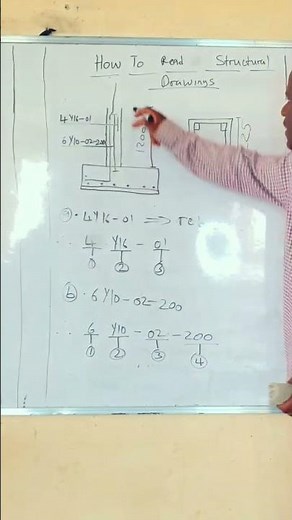 How To Read Structural
Drawings
4Y16-01
6Y10-02-200
1200
25
a) • 4Y16-01 ⟹
∴ 4 Y16 - 01
① ② ③
b) • 6Y10-02-200
∴ 6 Y10 - 02 - 200
① ② ③ ④